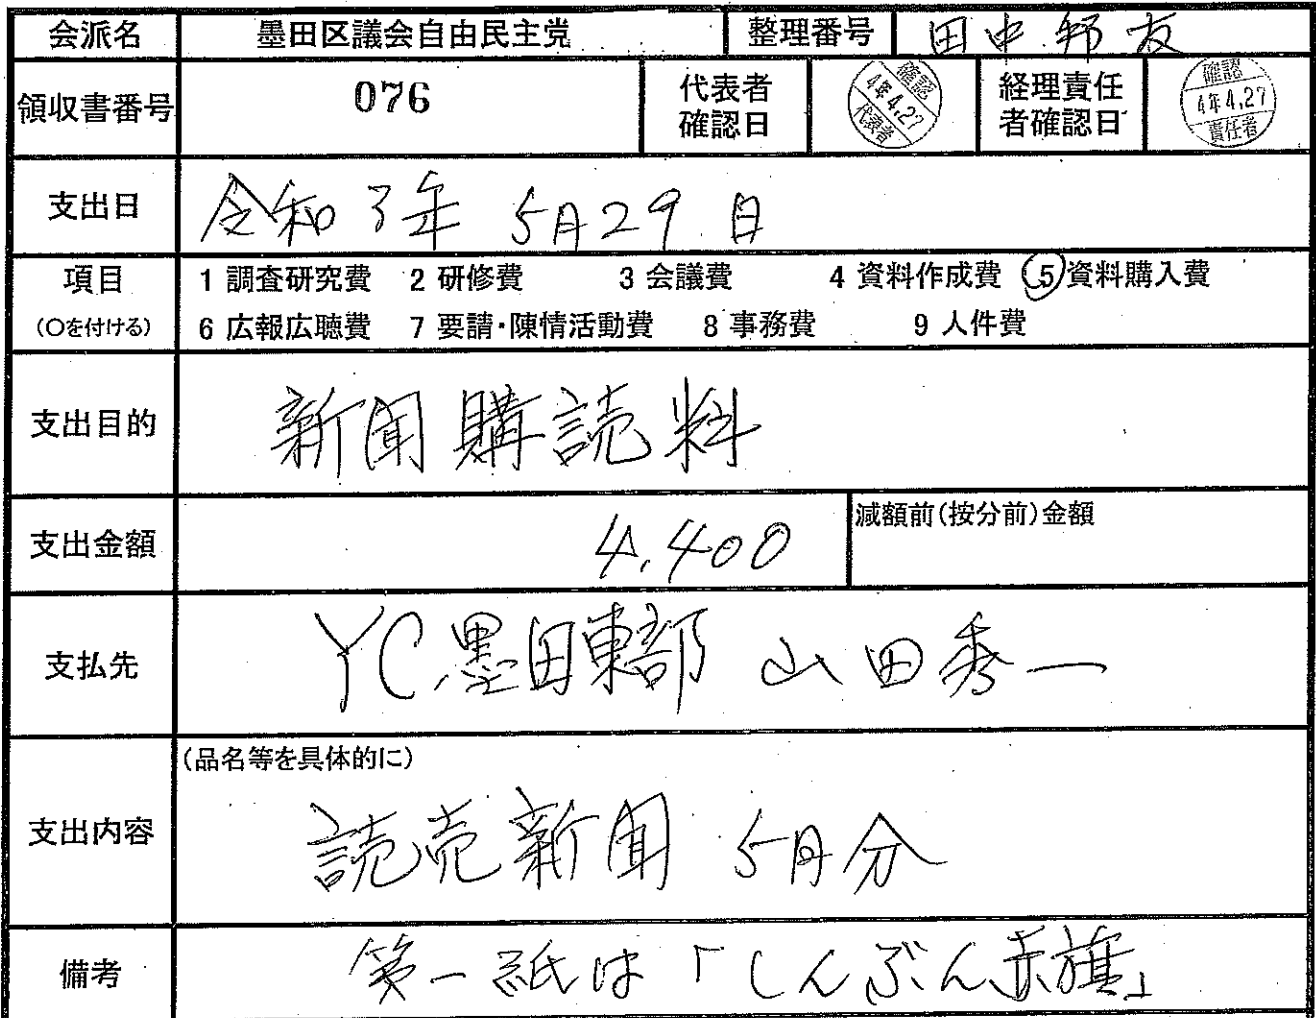 会派名 墨田区議会自由民主党 整理番号 田中邦友
領収書番号 076 代表者確認日 確認 4年4.27 代表者 経理責任者確認日 確認 4年4.27 責任者
支出日 令和3年 5月29日
項目 (○を付ける) 1 調査研究費 2 研修費 3 会議費 4 資料作成費 5 資料購入費
6 広報広聴費 7 要請・陳情活動費 8 事務費 9 人件費
支出目的 新聞購読料
支出金額 4,400 減額前(按分前)金額
支払先 YC墨田東部 山田秀一
支出内容 (品名等を具体的に)
読売新聞 5月分
備考 第一紙は「しんぶん赤旗」